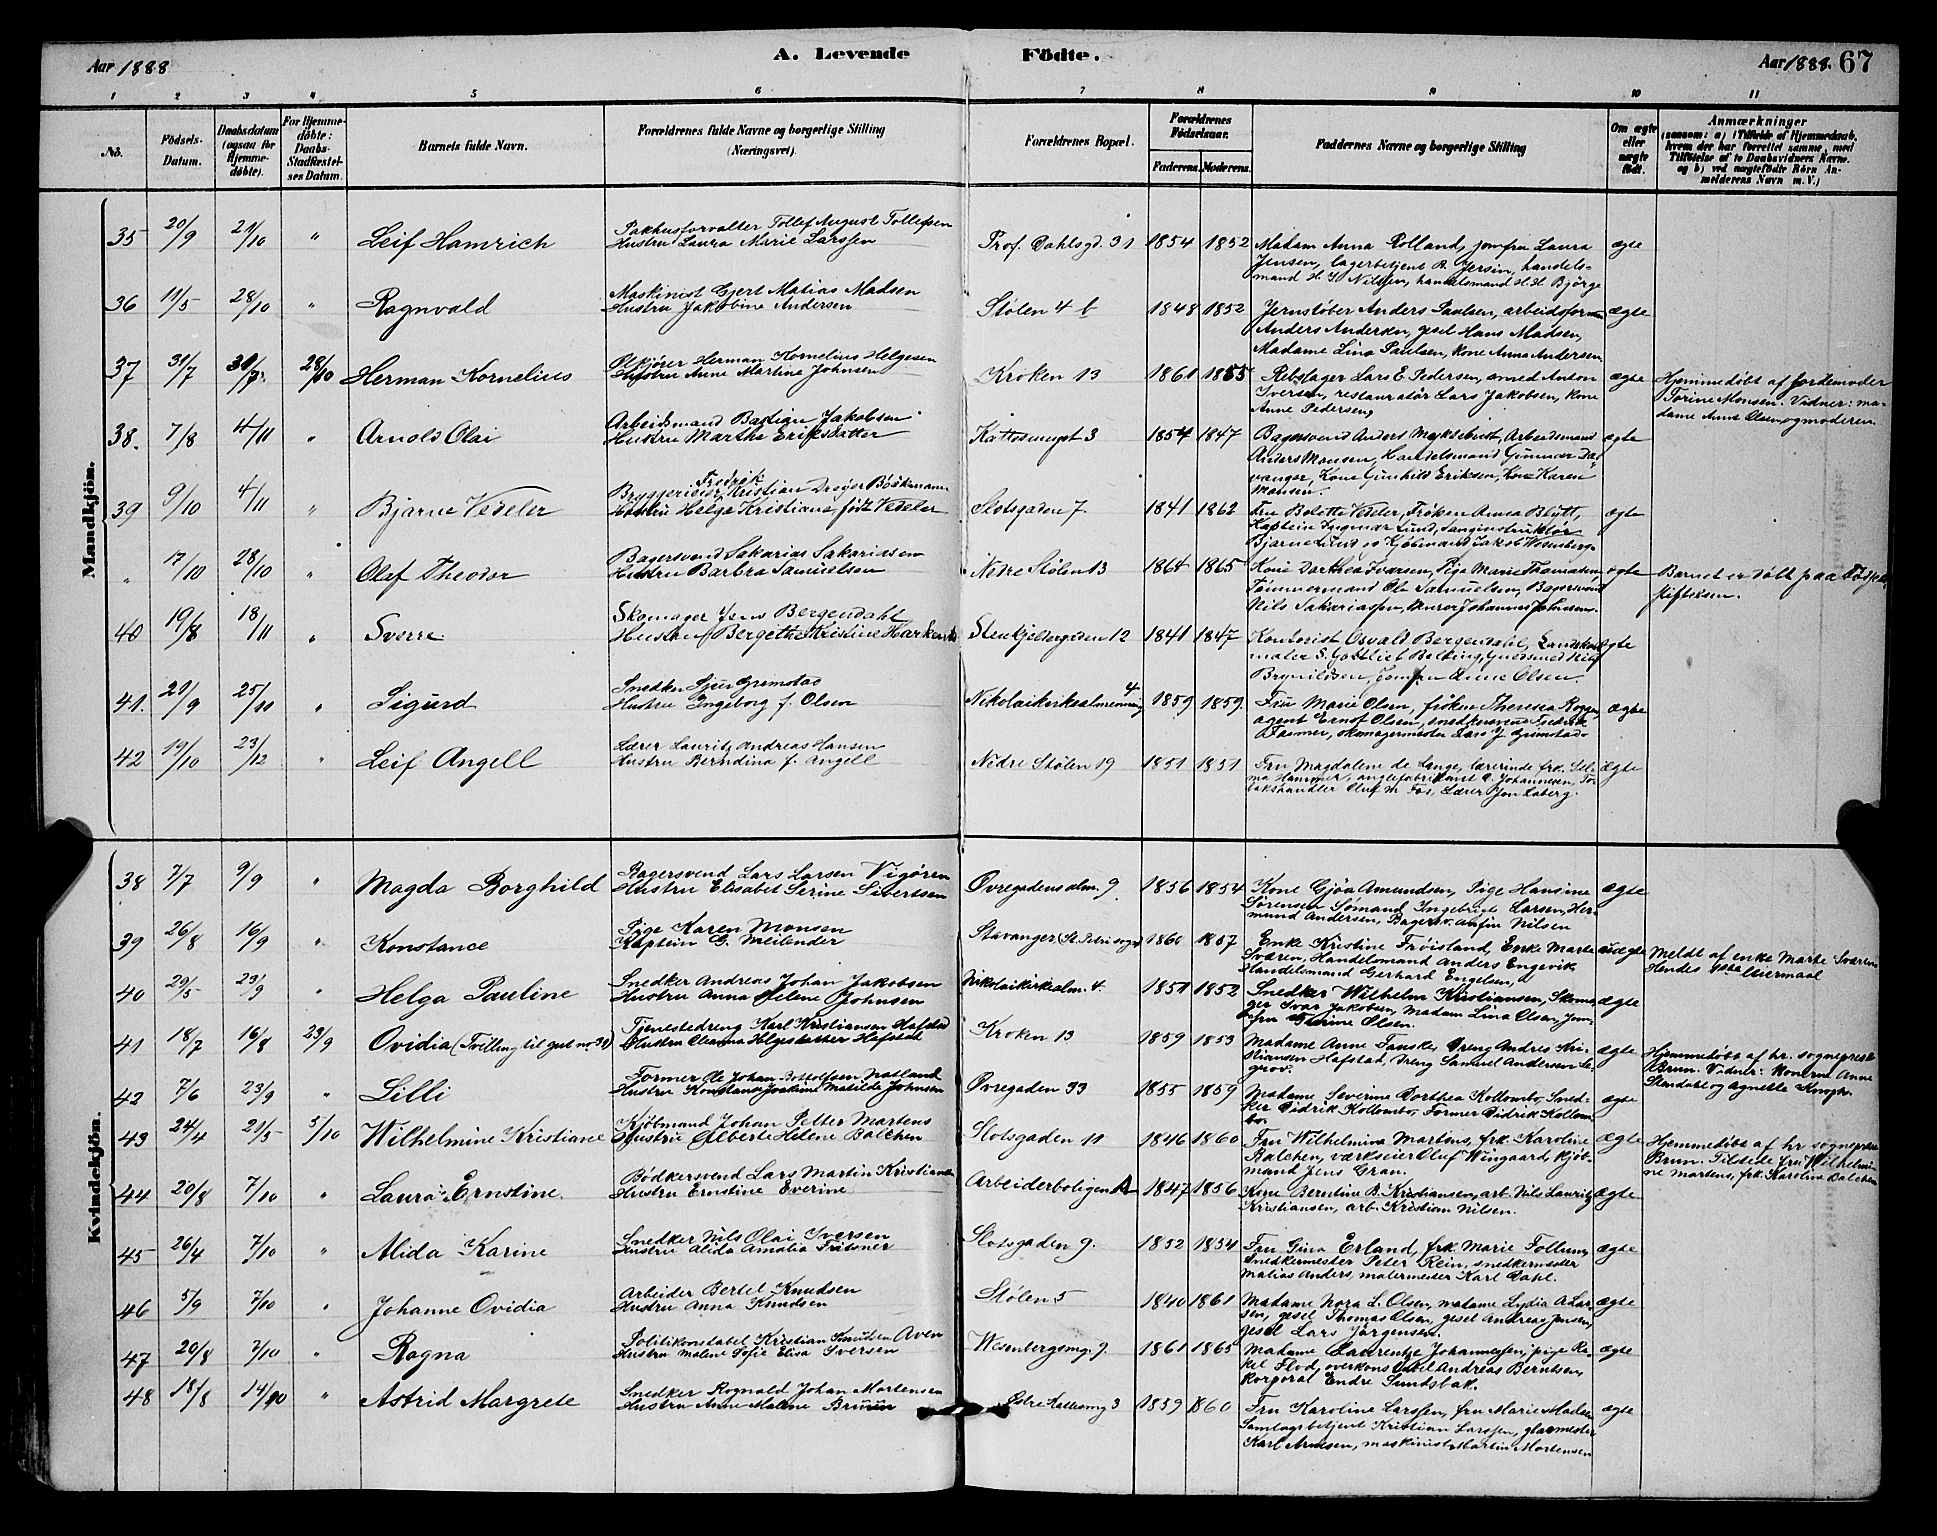 Aar 1888
A. Levende Födte.
Aar 1888. 67
1 2 3 4 5 6 7 8 9 10 11
No.
Födsels-Datum.
Daabsdatum (ogsaa for Hjemme-döbte).
For Hjemme-döbte: Daabs-Stadfæstelses Datum.
Barnets fulde Navn.
Forældrenes fulde Navne og borgerlige Stilling (Næringsvei).
Forældrenes Bopæl.
Forældrenes Födselsaar.
Faderens. Moderens.
Faddernes Navne og borgerlige Stilling
Om ægte eller uægte födt.
Anmærkninger
(saasom: a) i Tilfælde af Hjemmedaab, hvem der har forrettet samme, med Tilföielse af to Daabsvidners Navne, og b) ved uægtefödte Börn Anmelderens Navn m. V.)
Mandkjön.
35 20/9 21/10 " Leif Hamrich
Pakhusforvalter Tollef August Tollefsen
Hustru Laura Marie Larssen
Prof. Dahlsgd. 31 1854 1852
Madam Anna Rolland, jomfru Laura
Jensen, lagerbetjent B. Jersin, handels-
mand H. O Nilssen, handelsmand H. H. Bjørge
ægte
36 11/5 28/10 " Ragnvald
Maskinist Gjert Matias Madsen
Hustru Jakobine Andersen
Stølen 4 b 1848 1852
Jernstøber Anders Paulsen, arbeidsforman
Anders Andersen, gesel Hans Madsen,
Madame Lina Paulsen, kone Anna Andersen
ægte
37 31/7 31/7 28/10 Herman Kornelius
Ølkjører Herman Kornelius Helgesen
Hustru Anne Martine Johnsen
Kroken 13 1861 1855
Rebslager Lars E. Pedersen, smed Anton
Iversen, restauratør Lars Jakobsen, kone
Anne Pedersen
ægte
Hjemmedøbt af jordemoder
Torine Monsen. Vidner: ma-
dame Anna Olsen og moderen.
38. 7/8 4/11 " Arnold Olai
Arbeidsmand Bastian Jakobsen
Hustru Martha Eriksdatter
Kattesmuget 3 1854 1847
Bagersvend Anders Myklebust, Arbeidsmand
Anders Monsen, Handelsmand Gunnar Da-
vanger, Kone Gunhild Eriksen, Kone Karen
Monsen.
ægte
39 9/10 4/11 " Bjarne Vedeler
Fredrik
Bryggerieier Kristian Dreyer Böckmann
Hustru Helga Kristiane, født Vedeler
Slotsgaden 7. 1841 1862
Fru Bolette Vedeler, Frøken Anna Blytt,
Kaptein Ingmar Lund, Sanginstruktør
Bjarne Lund, Kjøbmand Jakob Wesenberg
ægte
" 17/10 28/10 " Olaf Theodor
Bagersvend Sakarias Sakariasen
Hustru Barbra Samuelsen
Nedre Stølen 13 1864 1865
Kone Dorthea Ivarsen, Pige Marie Thomasen,
Tømmermand Ole Samuelsen, Bagersvend
Nils Sakariassen, Murer Johannes Johnsen.
ægte
Barnet er døbt paa Fødsels-
stiftelsen.
40 19/8 18/11 " Sverre
Skomager Jens Bergendahl
Hustru Bergitte Kristine
Stenkjeldergaden 12 1841 1847
Kontorist Osvald Bergendahl, Landskabs-
maler S. Gottlieb Balling, Guldsmed
Brynildsen, Jomfru Anne Olsen.
ægte
41. 29/9 25/11 " Sigurd
Snedker Sjur Grimstad
Hustru Ingeborg f. Olsen
Nikolaikirkealmenning 4 1859 1859.
Fru Marie Olsen, frøken Theresa Rogge,
agent Ernst Olsen, snedkersvend Fredrik
Fasmer, skomagermester Lars J. Grimstad
ægte
42 19/10 23/12 " Leif Angell
Lærer Lauritz Andreas Hansen
Hustru Berndina f. Angell
Nedre Stølen 19 1851 1851
Fru Magdalene de Lange, lærerinde frk. Sel-
ma Hammer, anglefabrikant A. Johannesen, To-
bakshandler Oluf M. Fos, Lærer Jon Aaberg.
ægte
Kvindekjön.
38 7/7 9/9 " Magda Borghild
Bagersvend Lars Larsen Vigøren
Hustru Elisabet Serine Sivertsen
Øvregadensalm. 9 1856 1854
Kone Gjøa Amundsen, Pige Hansine
Sørensen, Sømand Ingebrigt Larsen, Her-
mund Andersen, Bagersv. Anfin Nilsen
ægte
39 26/8 16/9 " Konstance
Pige Karen Monsen
Kaptein G. Meilender
Stavanger (St. Petri sogn) 1860 1857
Enke Kristine Frøisland, Enke Marte
Sværen, Handelsmand Anders Engevik
Handelsmand Gerhard Engelsen,
uægte
Meldt af enke Marte Sværen
Hendes 
40 29/5 23/9 " Helga Pauline
Snedker Andreas Johan Jakobsen
Hustru Anna Helene Johnsen
Nikolaikirkealm. 4. 1851 1852
Snedker Wilhelm Kristiansen, Skoma-
ger Ivar Jakobsen, Madam Lina Olsen, Jom-
fru Olsen.
ægte
41 18/7 16/8 23/9 Ovidia (Tvilling til gut no. 34)
Tjenestedreng Karl Kristiansen Hafstad
Hustru Oleana Helgesdatter Hafstad
Kroken 13 1859 1853
Madame Anne Fanske, Dreng Andres Kri-
stiansen Hafstad, Dreng Samuel Andersen Le-
grov.
ægte
Hjemmedøbt af hr. sogneprest
Brun. Vidner: konerne Anne
Stendahl og Agnette Knoph.
42 7/6 23/9 " Lilli
Former Ole Johan Bottolfsen Natland
Hustru Konstanse Joakime Matilde Johnsen
Øvregaden 33 1855 1859
Madame Severine Dorthea Kollombo, Sned-
ker Didrik Kollombo, Former Didrik Kollom-
bo.
ægte
43 24/4 21/5 5/10 Wilhelmine Kristiane
Kjøbmand Johan Petter Martens
Hustru Alberte Helene Balchen
Slotsgaden 11 1846 1860
Fru Wilhelmina Martens, frk. Karoline
Balchen, værkseier Oluf Wingaard, kjøb-
mand Jens Gran.
ægte
Hjemmedøbt af hr sogneprest
Brun. Tilstede fru Wilhelmi-
ne Martens, frk. Karoline Balchen
44 20/8 7/10 " Laura Ernstine.
Bødkersvend Lars Martin Kristiansen
Hustru Ernstine Everine
Arbeiderboligen A 1847 1856
Kone Berntine B. Kristiansen, arb. Nils Lauritz
Kristiansen, arb. Kristian Nilsen.
ægte
45 26/4 7/10 " Alida Karine
Snedker Nils Olai Iversen
Hustru Alida Amalia Fritsner
Slotsgaden 9. 1852 1854
Fru Gina Erland, frk. Marie Follum,
Snedkermester Peter Rein, snedkermester
Matias Anders, malermester Karl Dahl.
ægte
46 5/9 7/10 " Johanne Ovidia
Arbeider Bertel Knudsen
Hustru Anna Knudsen
Stølen 5 1840 1861
Madame Nora L. Olsen, madame Lydia A. Lar-
sen, gesel Thomas Olsen, gesel Andreas Jensen,
gesel Lars Jørgensen.
ægte
47 20/8 7/10 " Ragna
Politikonstabel Kristian Knudsen Aven
Hustru Malene Sofie Elisa Iversen
Wesenbergsmg. 9 1861 1865
Madame Laurentze Johannessen, pige Ra-
kel Flod, overkonstabel Andreas Berntsen,
korporal Endre Sundsbak.
ægte
48 18/8 14/10 " Astrid Margrete
Snedker Rognald Johan Mortensen
Hustru Anne Malene Bruun
Østre Kattesmg 3 1859 1860
Fru Karoline Larssen, fru Marie Madsen
Samlagsbetjent Kristian Larssen, glasmester
Karl Arnesen, maskinist Martin Mortensen
ægte